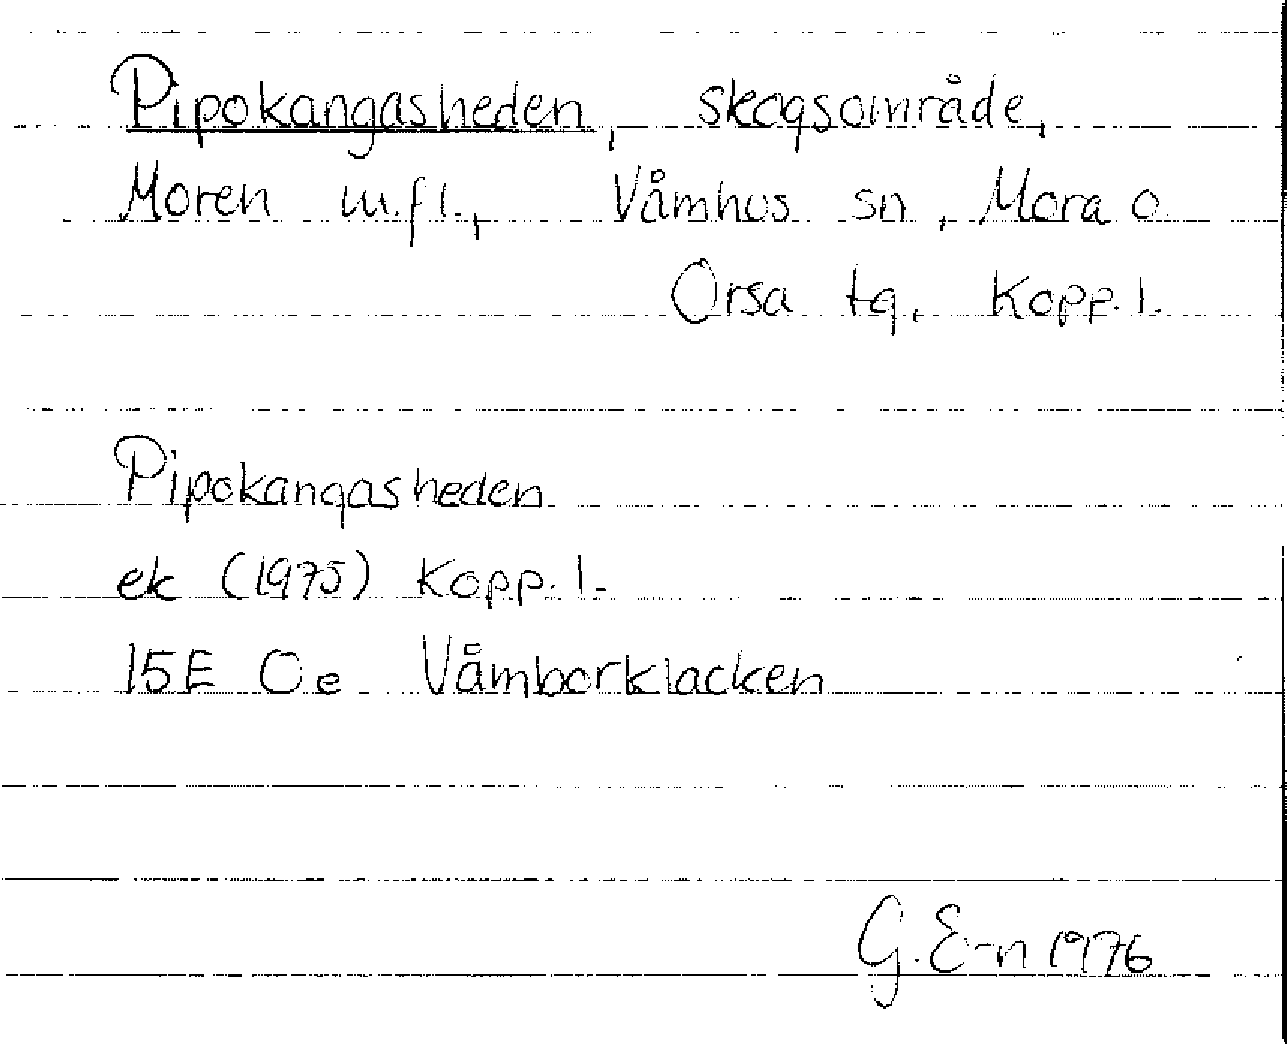 Pipokangasheden, skogsområde,
Moren m.fl., Våmhus sn, Mora o
Orsa tg, Kopp. l.
Pipokangasheden
ek (1975) Kopp. l.
15E 0e Våmborklacken
G. E-n 1976